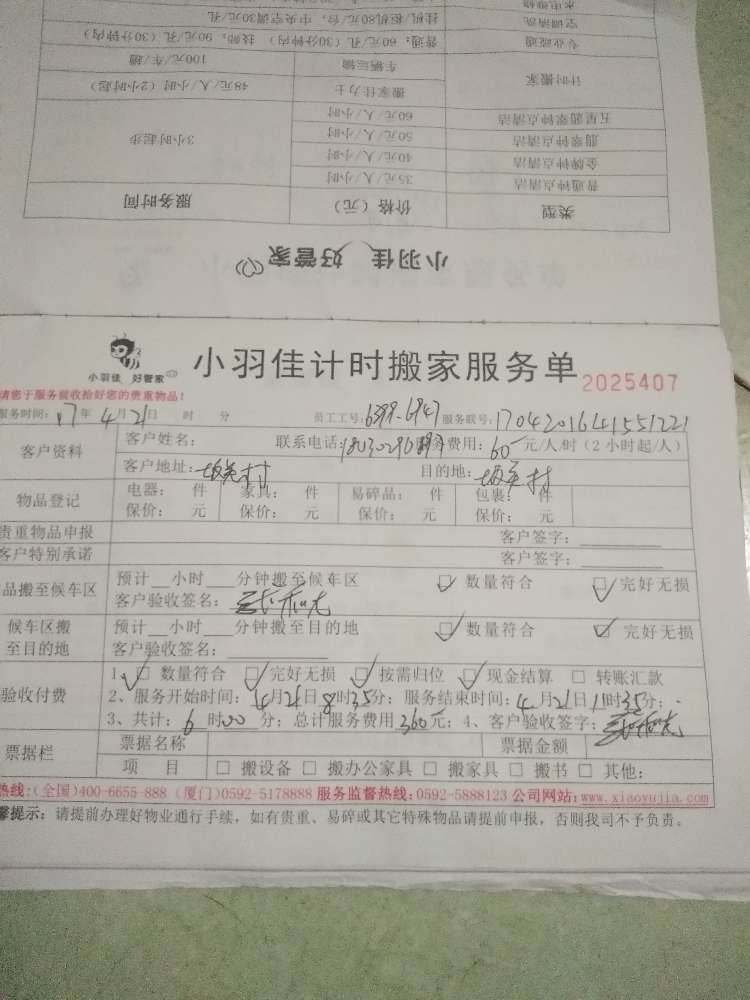 水电维修
空调清洗 挂机、柜机80元/台，中央空调30元/孔
专业疏通 普通：60元/孔（30分钟内） 技师：90元/孔（30分钟内）
计时搬家 车辆运输 100元/车/趟
搬家佳力士 48元/人/小时（2小时起）
五星翡翠钟点清洁 60元/人/小时
翡翠钟点清洁 50元/人/小时 3小时起步
金牌钟点清洁 40元/人/小时
普通钟点清洁 35元/人/小时
类型 价格（元） 服务时间
小羽佳 好管家
小羽佳 好管家
小羽佳计时搬家服务单 2025407
请您于服务前收拾好您的贵重物品！
服务时间：17年4月21日 时 分 员工工号：6399-6947 服务联号：1704201641551221
客户资料 客户姓名： 联系电话： 费用：60元/人/时（2小时起/人）
客户地址： 村 目的地： 村
物品登记 电器： 件 家具： 件 易碎品： 件 包裹： 件
保价： 元 保价： 元 保价： 元 保价： 元
贵重物品申报 客户签字：
客户特别承诺 客户签字：
品搬至候车区 预计__小时___分钟搬至候车区 数量符合 完好无损
客户验收签名：
候车区搬至目的地 预计__小时___分钟搬至目的地 数量符合 完好无损
客户验收签名：
验收付费 1、数量符合 完好无损 按需归位 现金结算 转账汇款
2、服务开始时间：4月21日8时35分；服务结束时间：4月21日11时35分；
3、共计：6时00分；总计服务费用360元；4、客户验收签字：
票据栏 票据名称 票据金额
项 目 搬设备 搬办公家具 搬家具 搬书 其他：
热线：(全国)400-6655-888 (厦门)0592-5178888 服务监督热线：0592-5888123 公司网站：www.xiaoyujia.com
馨提示：请提前办理好物业通行手续，如有贵重、易碎或其它特殊物品请提前申报，否则我司不予负责。